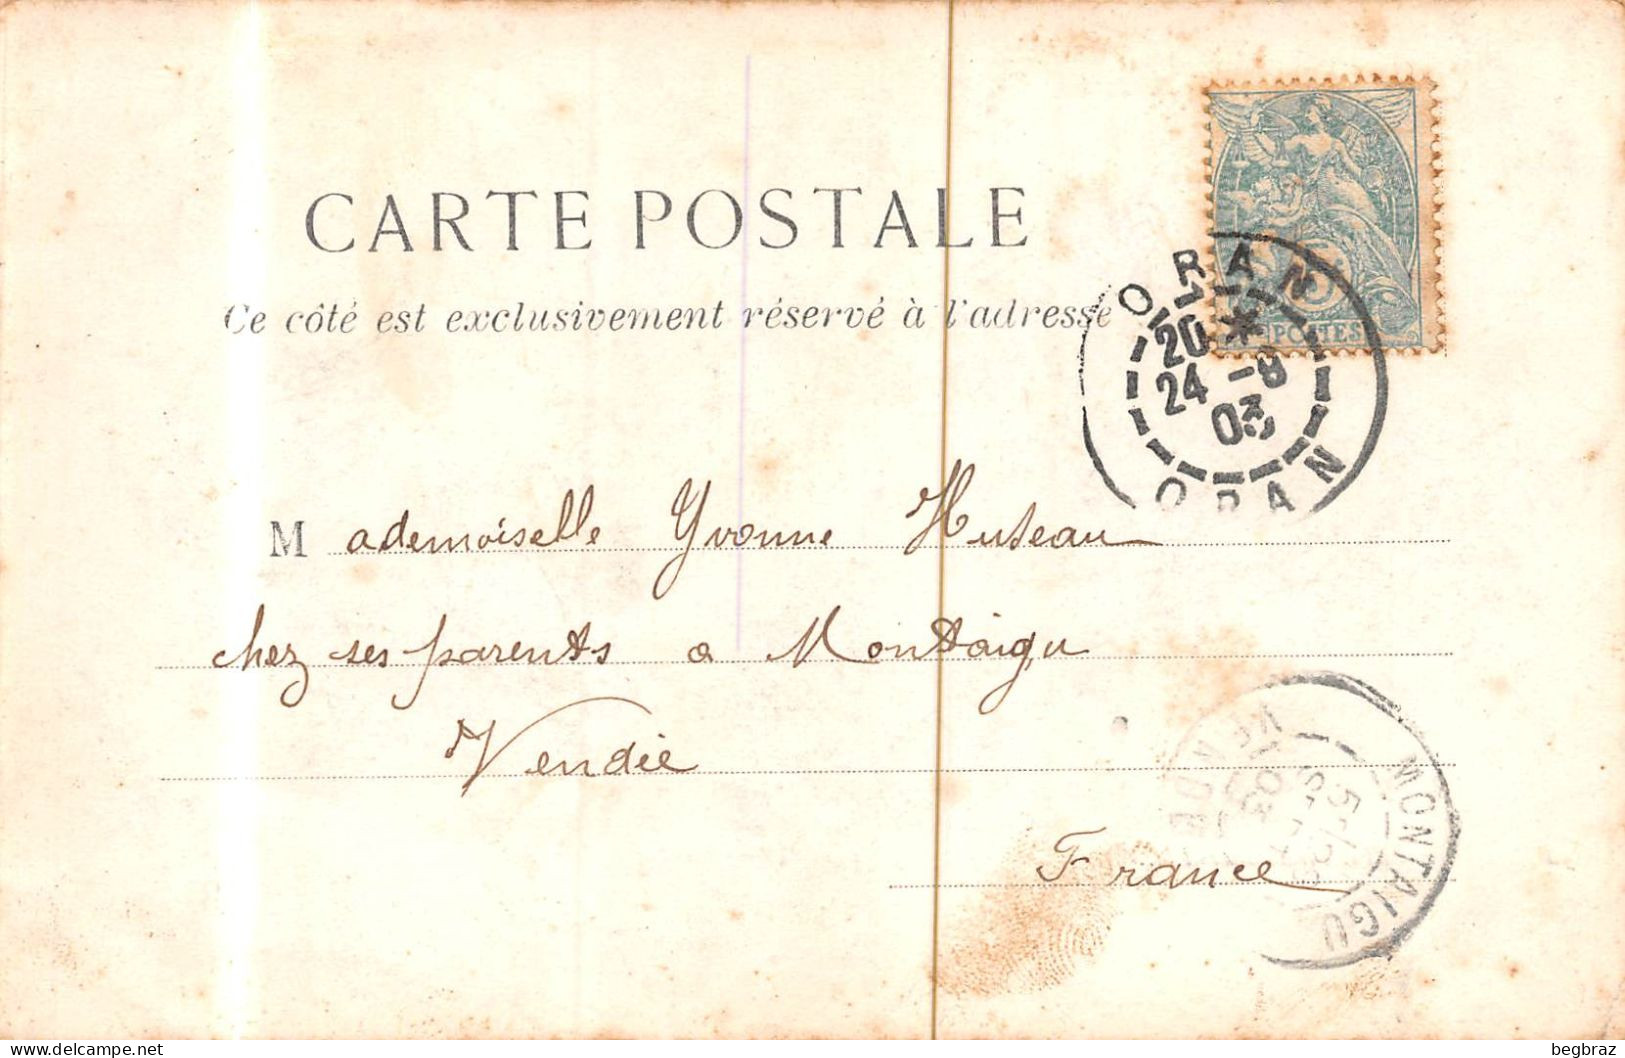 CARTE POSTALE
Ce côté est exclusivement réservé à l'adresse
5c
POSTES
ORAN
20 *
24 -8
03
ORAN
Mademoiselle Yvonne Huteau
chez ses parents a Montaigu
Vendée
France
MONTAIGU
VENDEE
03
begbraz